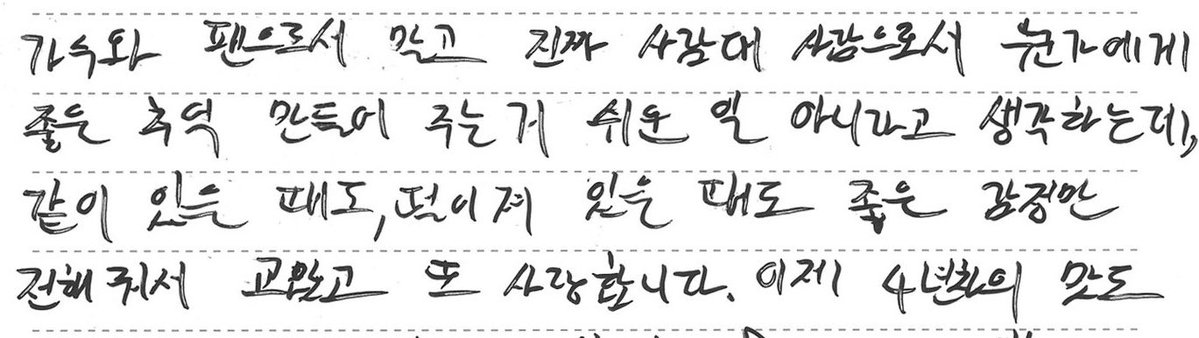 가수와 팬으로서 말고 진짜 사람대 사람으로서 누군가에게
좋은 추억 만들어 주는거 쉬운 일 아니라고 생각하는데,
같이 있을 때도, 떨어져 있을 때도 좋은 감정만
전해 줘서 고맙고 또 사랑합니다. 이제 4년차의 맛도